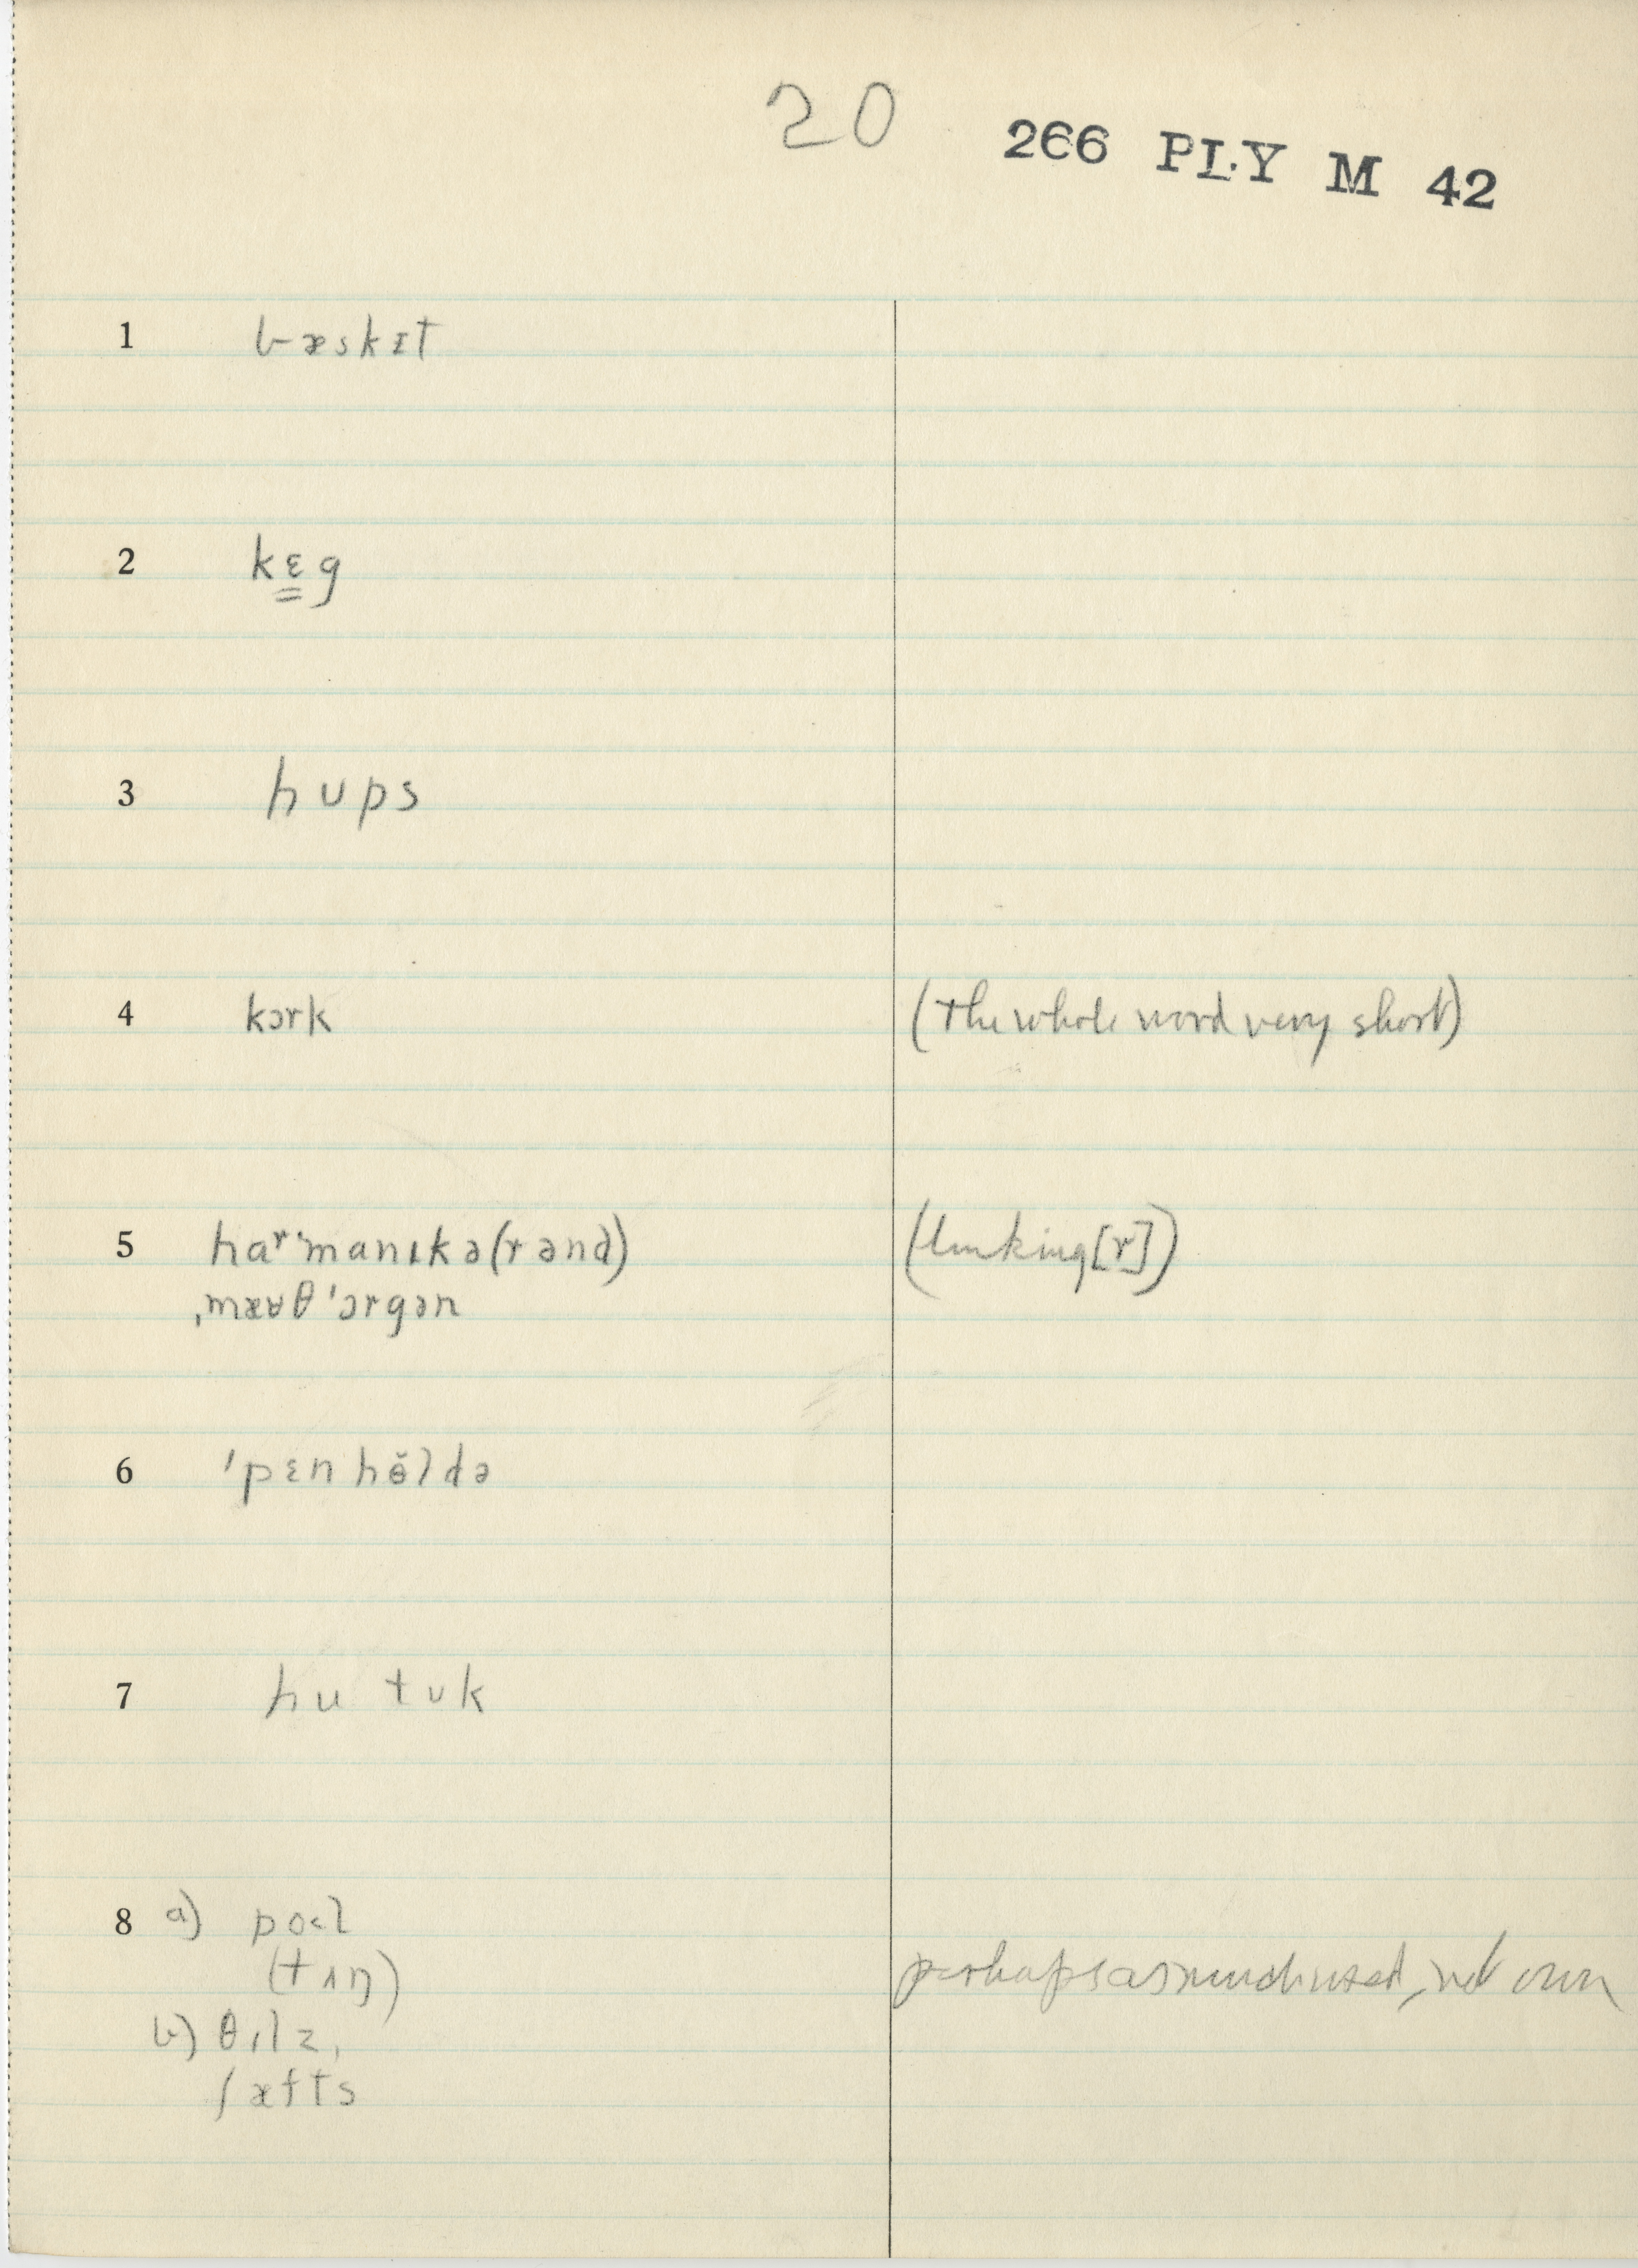 20 266 PLY M 42
1 bæskɪt
2 kɛ̳g
3 hʊps
4 kɔrk (the whole word very short)
5 haʳˈmanɪkə(r ənd) (linking [r])
ˌmæʊθˈɔrgən
6 ˈpɛnhɵ̆ldə
7 hu tʊk
8 a) po˂l
(tʌŋ) perhaps as much used, not own
b) θɪlz,
ʃæfts